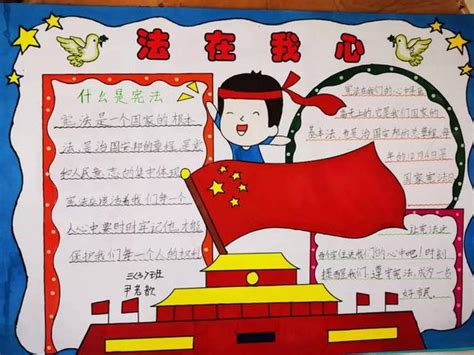 法在我心
什么是宪法
宪法是一个国家的根本
法,是治国安邦的章程,是党
和人民意志的集中体现
宪法应该活着我们每一个
人心中要时时牢记他,才能
保护我们每一个人的权利
三(3)班
宪法在我们的心中至高
无上的,它是我们国家的
基本法,也是治国安邦的章程,每
年的12月4日是
国家宪法日
让宪法走
们的心中吧!时刻
提醒我们,遵守宪法,成为一名
好市民.